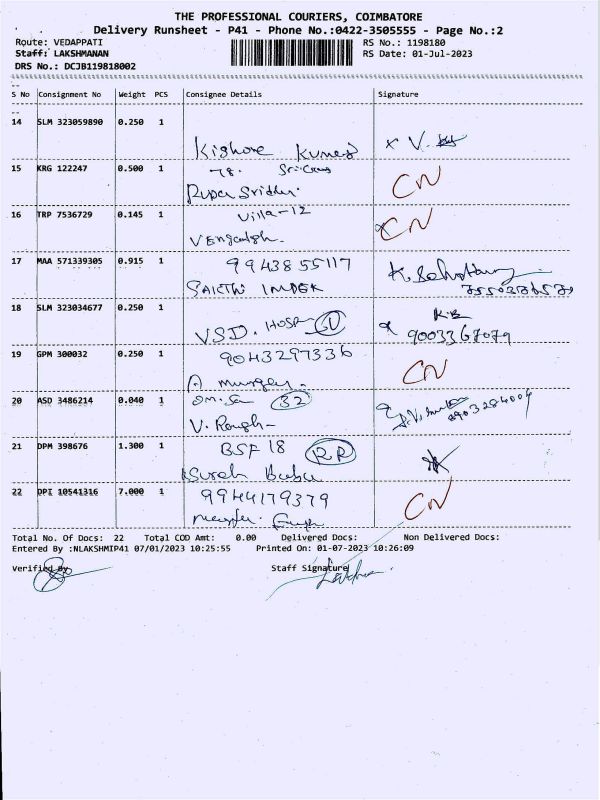 THE PROFESSIONAL COURIERS, COIMBATORE
Delivery Runsheet - P41 - Phone No.:0422-3505555 - Page No.:2
Route: VEDAPPATI RS No.: 1198180
Staff: LAKSHMANAN RS Date: 01-Jul-2023
DRS No.: DCJB119818002
S No Consignment No Weight PCS Consignee Details Signature
14 SLM 323059890 0.250 1
Kishore Kumar
15 KRG 122247 0.500 1
CN
16 TRP 7536729 0.145 1 Villa-12
CN
17 MAA 571339305 0.915 1 9943855117
SAKTHI
18 SLM 323034677 0.250 1
VSD. HOSP
9003367079
19 GPM 300032 0.250 1 9043297336
CN
20 ASD 3486214 0.040 1 32
V.
21 DPM 398676 1.300 1 BSF 18 RR
Babu
22 DPI 10541316 7.000 1 9944179379
CN
Total No. Of Docs: 22 Total COD Amt: 0.00 Delivered Docs: Non Delivered Docs:
Entered By :NLAKSHMIP41 07/01/2023 10:25:55 Printed On: 01-07-2023 10:26:09
Verified By Staff Signature